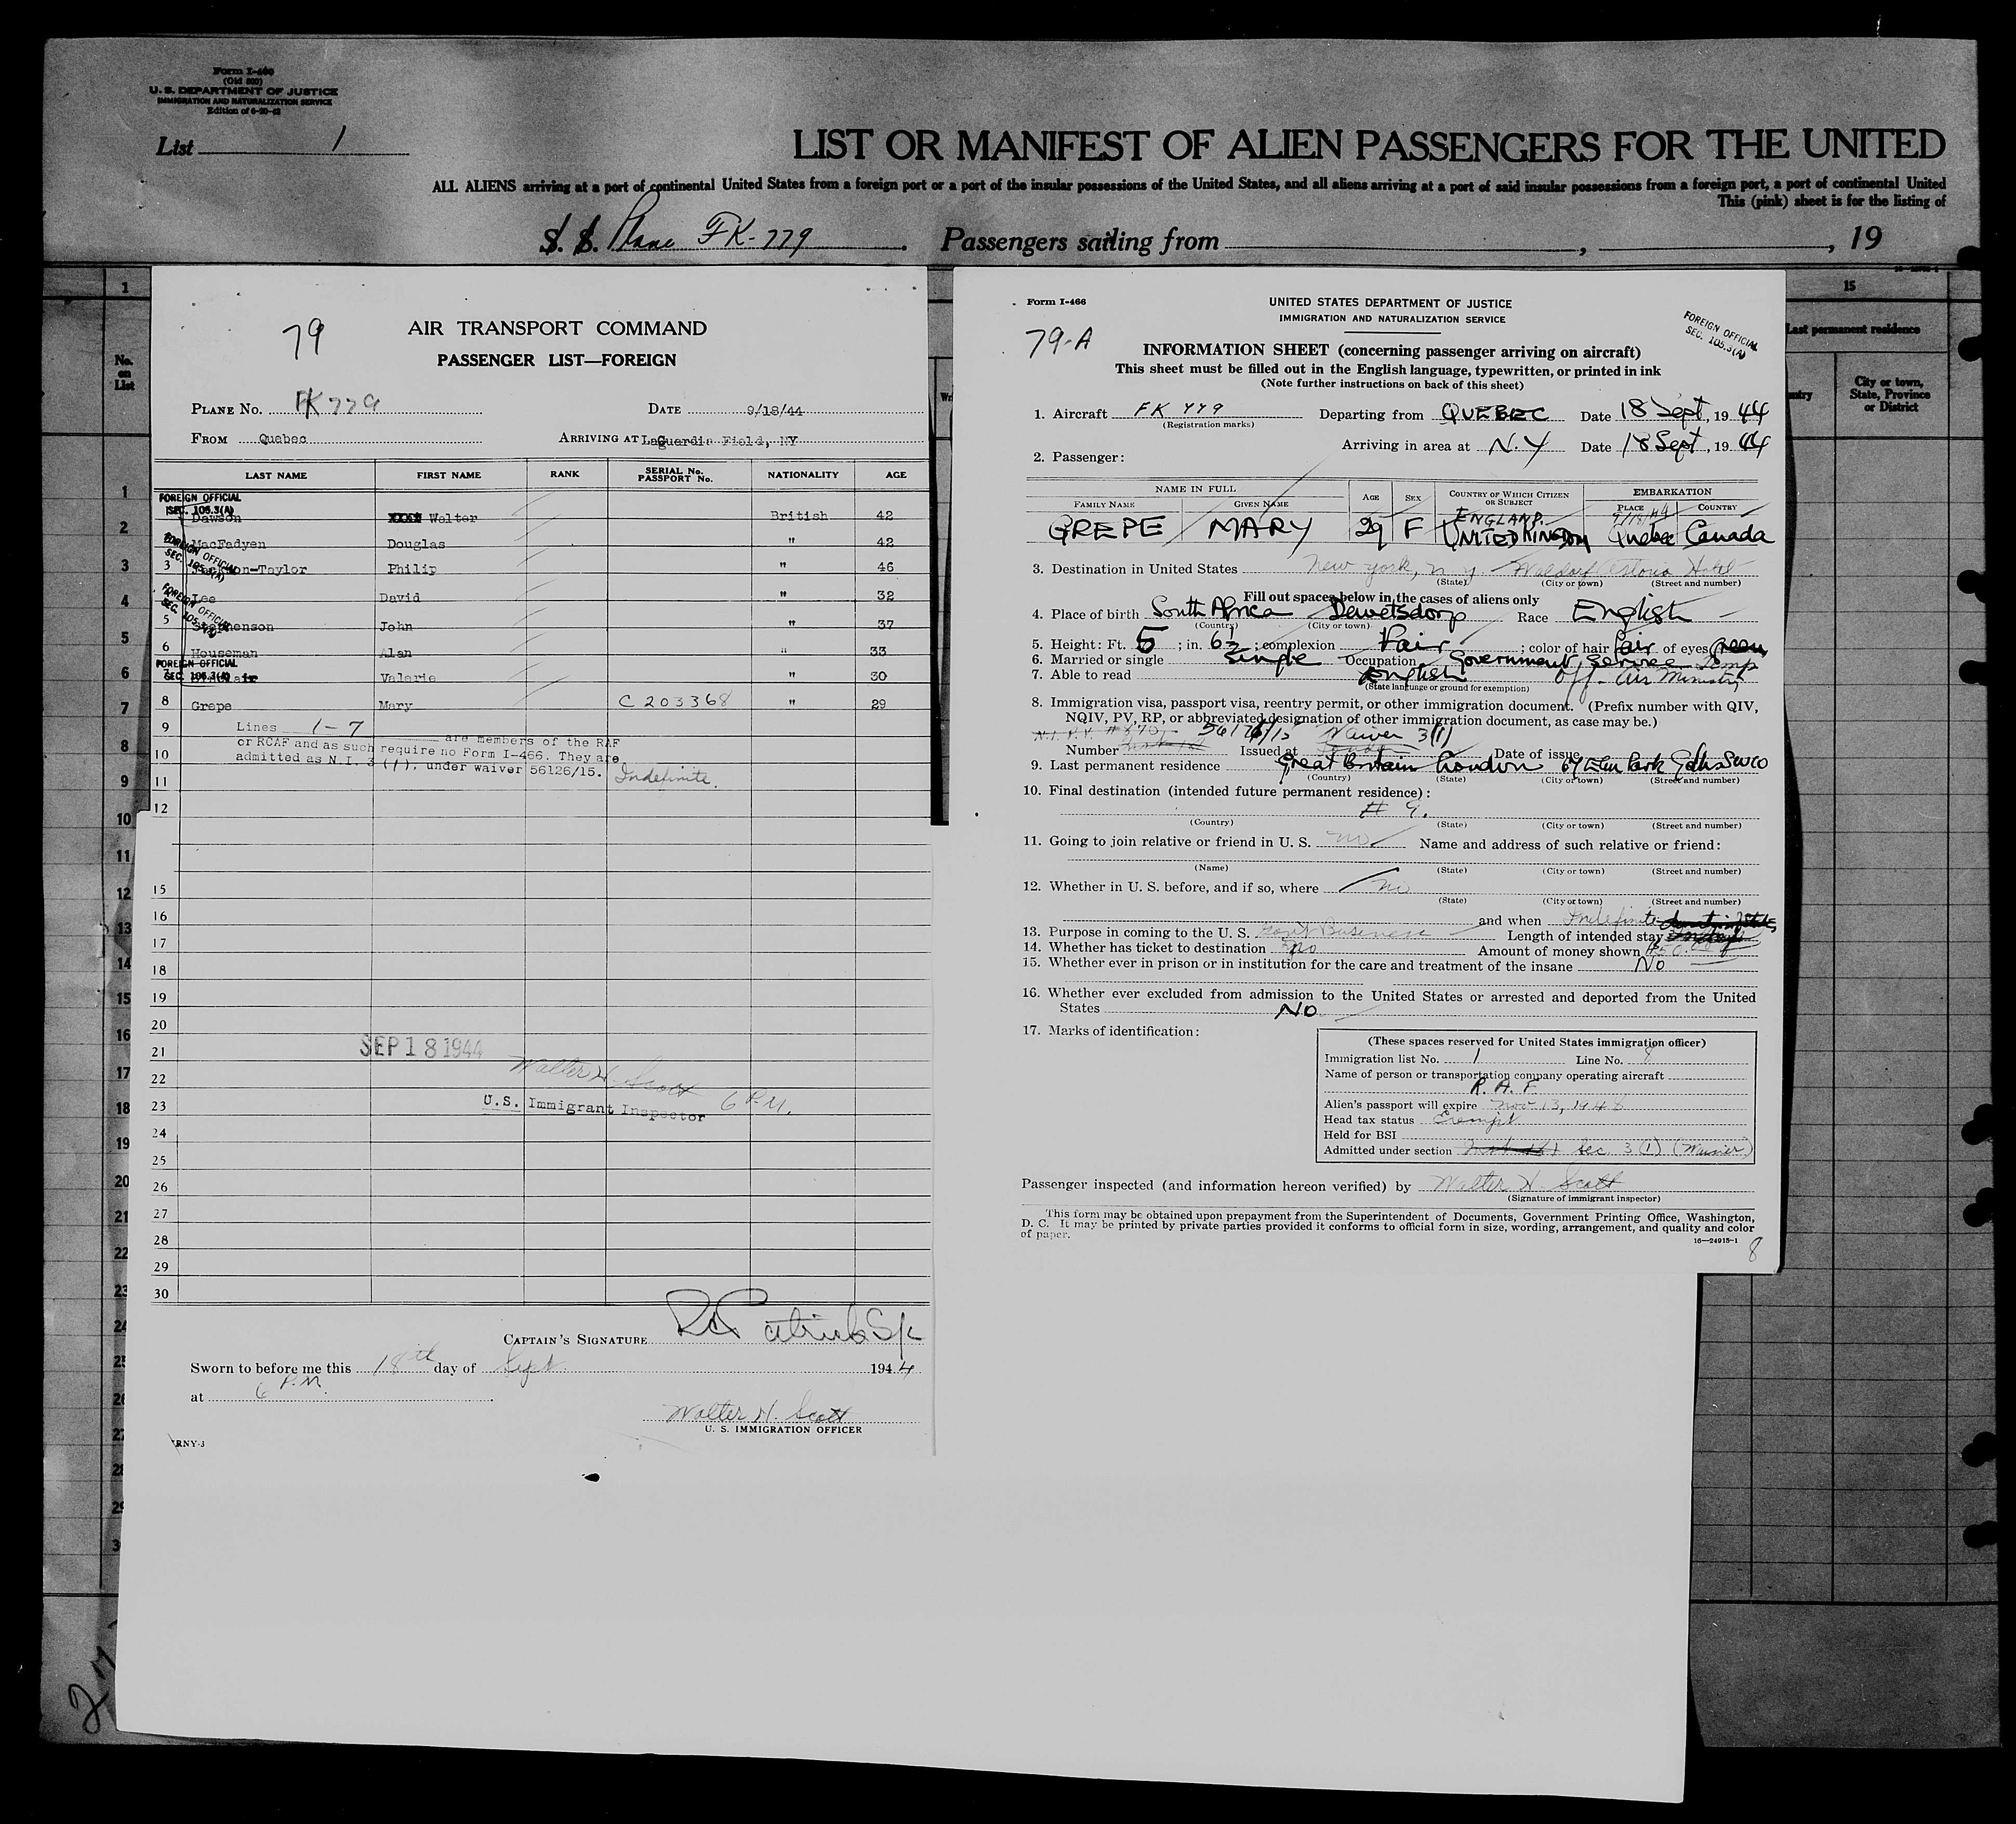 Form I-466
(Old 500)
U. S. DEPARTMENT OF JUSTICE
IMMIGRATION AND NATURALIZATION SERVICE
Edition of 6-20-42
List 1
LIST OR MANIFEST OF ALIEN PASSENGERS FOR THE UNITED
ALL ALIENS arriving at a port of continental United States from a foreign port or a port of the insular possessions of the United States, and all aliens arriving at a port of said insular possessions from a foreign port, a port of continental United
This (pink) sheet is for the listing of
S. S. Plane FK-779. Passengers sailing from , , 19
79
AIR TRANSPORT COMMAND
PASSENGER LIST—FOREIGN
PLANE No. FK 779 DATE 9/18/44
FROM Quebec ARRIVING AT LaGuardia Field, NY
LAST NAME FIRST NAME RANK SERIAL No. PASSPORT No. NATIONALITY AGE
FOREIGN OFFICIAL
SEC. 105.3(A)
Dawson Walter British 42
MacFadyen Douglas " 42
FOREIGN OFFICIAL
SEC. 105.3(A)
3 Philip " 46
Lee David " 32
FOREIGN OFFICIAL
SEC. 105.3(A)
5 John " 37
6 Houseman Alan " 33
FOREIGN OFFICIAL
SEC. 105.3(A)
Valerie " 30
8 Grepe Mary C 203368 " 29
9 Lines 1-7 are members of the RAF
or RCAF and as such require no Form I-466. They are
10 admitted as N.I. 3 (1), under waiver 56126/15. Indefinite.
11
12
15
16
17
18
19
20
21 SEP 18 1944
22 Walter H. Scott
23 U.S. Immigrant Inspector 6 P.M.
24
25
26
27
28
29
30
CAPTAIN'S SIGNATURE
Sworn to before me this 18th day of Sept. 1944
at 6 P.M.
Walter H. Scott
U. S. IMMIGRATION OFFICER
RNY-3
Form I-466
UNITED STATES DEPARTMENT OF JUSTICE
IMMIGRATION AND NATURALIZATION SERVICE
FOREIGN OFFICIAL
SEC. 105.3(A)
79-A
INFORMATION SHEET (concerning passenger arriving on aircraft)
This sheet must be filled out in the English language, typewritten, or printed in ink
(Note further instructions on back of this sheet)
1. Aircraft FK 779 Departing from QUEBEC Date 18 Sept, 1944
(Registration marks)
Arriving in area at N.Y Date 18 Sept, 1944
2. Passenger:
NAME IN FULL AGE SEX COUNTRY OF WHICH CITIZEN OR SUBJECT EMBARKATION
FAMILY NAME GIVEN NAME PLACE COUNTRY
GREPE MARY 29 F ENGLAND. UNITED KINGDOM 9/18/44 Quebec Canada
3. Destination in United States New York, N.Y. Waldorf Astoria Hotel
(State) (City or town) (Street and number)
Fill out spaces below in the cases of aliens only
4. Place of birth South Africa Dewetsdorp Race English
(Country) (City or town)
5. Height: Ft. 5; in. 6½; complexion Fair; color of hair fair of eyes Green
6. Married or single Single Occupation Government Service Temp
7. Able to read English Off. Air Ministry
(State language or ground for exemption)
8. Immigration visa, passport visa, reentry permit, or other immigration document. (Prefix number with QIV,
NQIV, PV, RP, or abbreviated designation of other immigration document, as case may be.)
Waiver 3(1)
Number Issued at London Date of issue
9. Last permanent residence Great Britain London 69 Elm Park Gdns SW10
(Country) (State) (City or town) (Street and number)
10. Final destination (intended future permanent residence):
# 9.
(Country) (State) (City or town) (Street and number)
11. Going to join relative or friend in U. S. no Name and address of such relative or friend:
(Name) (State) (City or town) (Street and number)
12. Whether in U. S. before, and if so, where no
(State) (City or town) (Street and number)
and when Indefinite
13. Purpose in coming to the U. S. Gov't Business Length of intended stay
14. Whether has ticket to destination no Amount of money shown
15. Whether ever in prison or in institution for the care and treatment of the insane No
16. Whether ever excluded from admission to the United States or arrested and deported from the United
States No
17. Marks of identification:
(These spaces reserved for United States immigration officer)
Immigration list No. 1 Line No. 8
Name of person or transportation company operating aircraft
R. A. F.
Alien's passport will expire Nov. 13, 1948
Head tax status Exempt
Held for BSI
Admitted under section Sec 3 (1) (Waiver)
Passenger inspected (and information hereon verified) by Walter H. Scott
(Signature of immigrant inspector)
This form may be obtained upon prepayment from the Superintendent of Documents, Government Printing Office, Washington,
D. C. It may be printed by private parties provided it conforms to official form in size, wording, arrangement, and quality and color
of paper.
16—24915-1
8
15
Last permanent residence
City or town, State, Province or District
No. on List